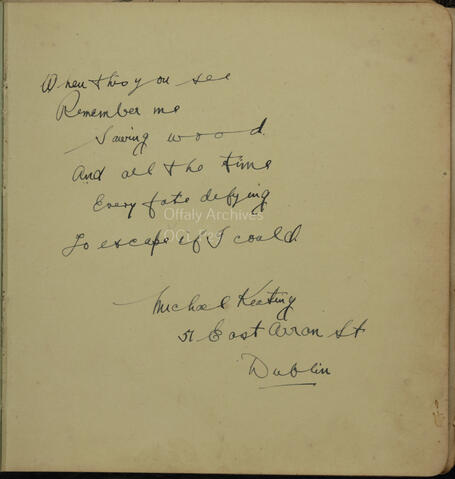 When this you see
Remember me
Sawing wood
And all the time
Every fate defying
Offaly Archives
To escape if I could
Michael Keating
51 East Arran St
Dublin